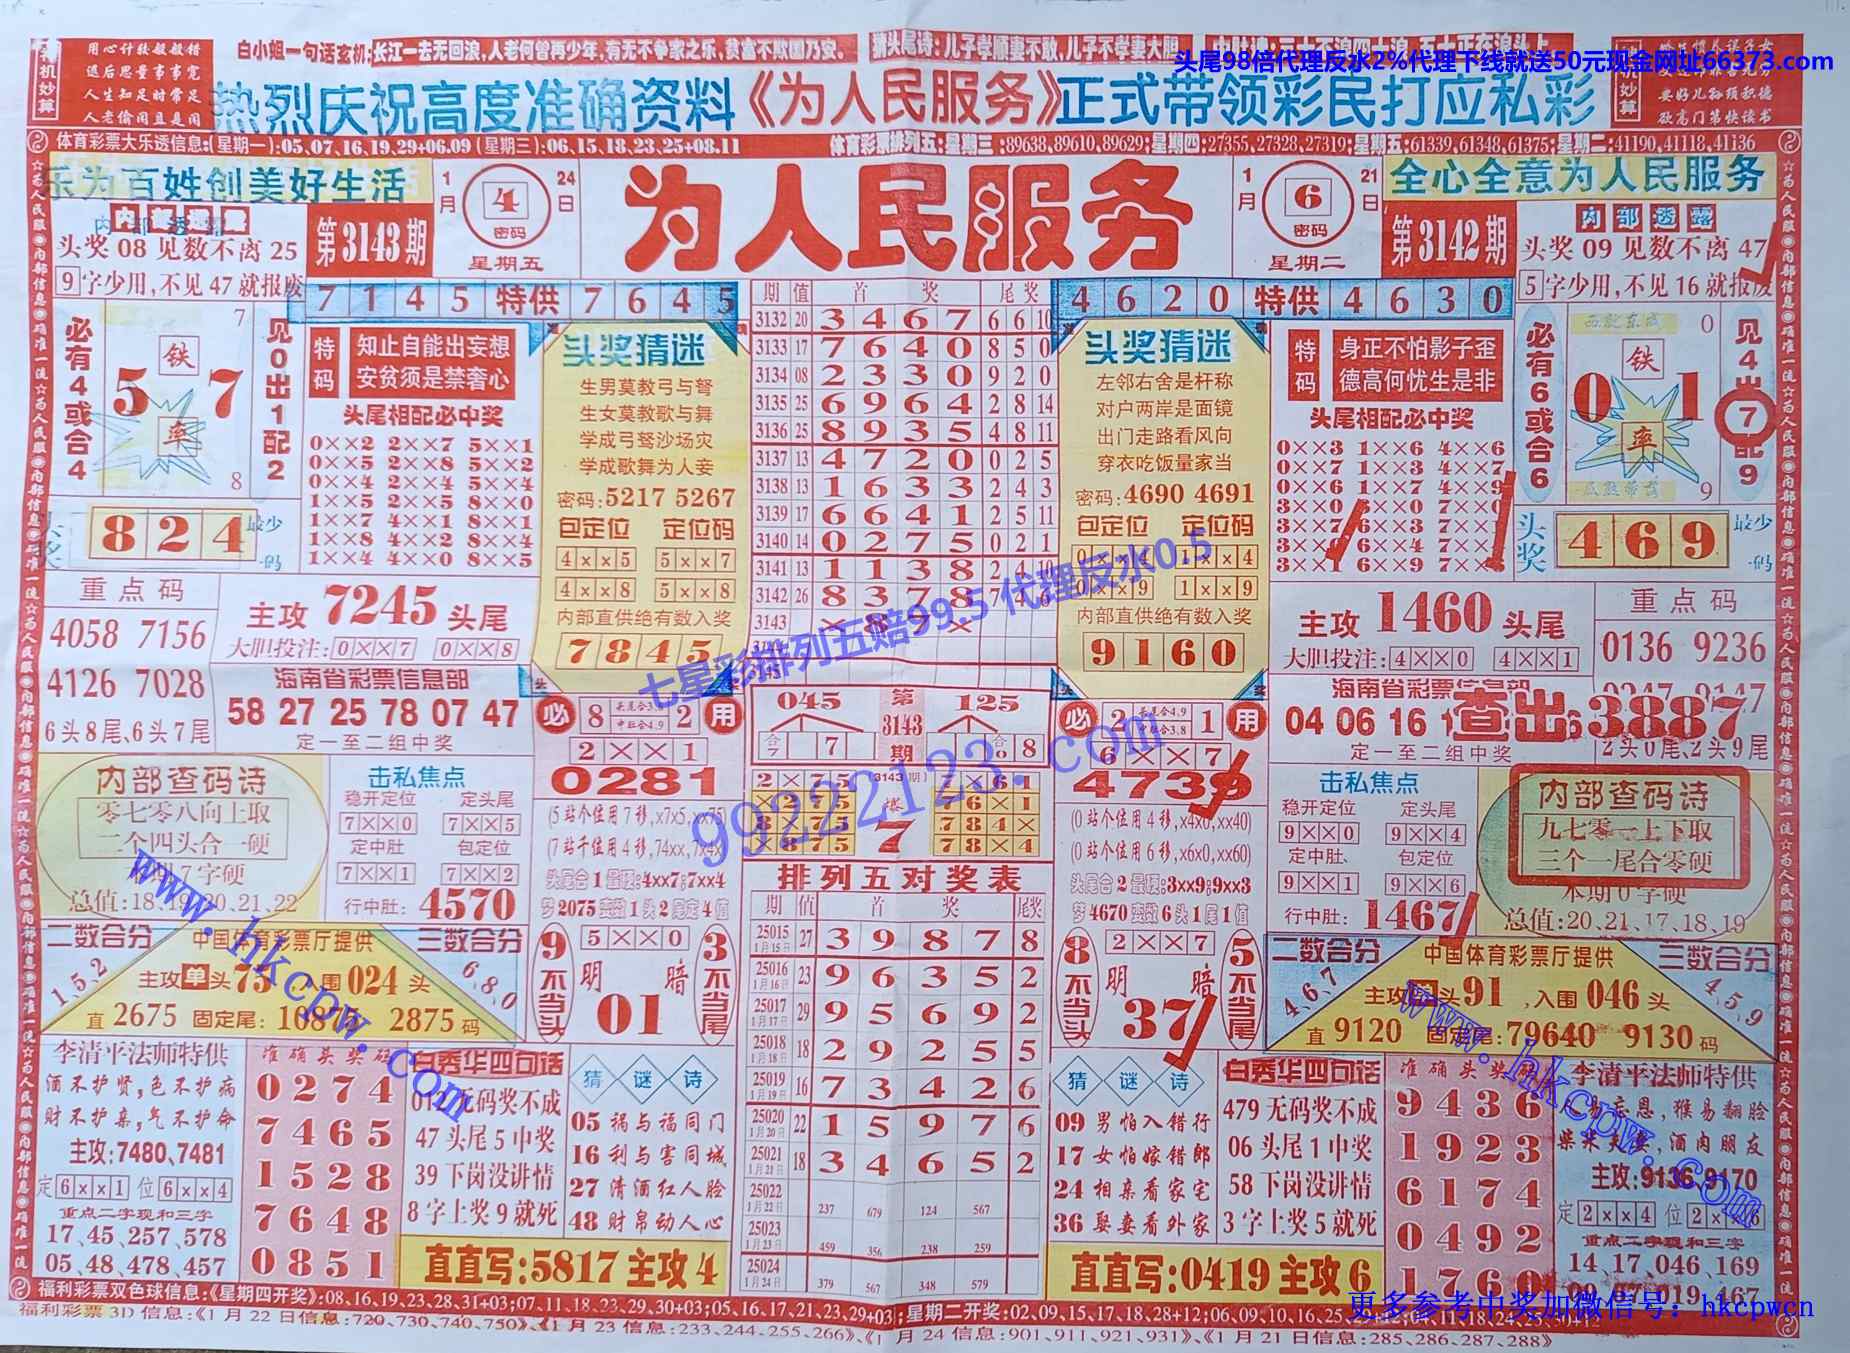 白小姐一句话玄机:长江一去无回浪,人老何曾再少年,有无不争家之乐,贫富不欺国乃安。
猜头尾诗:儿子学顺妻不敢,儿子不学妻大胆
头尾98倍代理反水2%代理下线就送50元现金网址66373.com
用心计较般般错
退后思量事事宽
人生知足时常足
人老偷闲且是闲
热烈庆祝高度准确资料《为人民服务》正式带领彩民打应私彩
要好儿孙须积德
欲高门第快读书
体育彩票大乐透信息:(星期一):05,07,16,19,29+06.09 (星期三):06,15,18,23,25+08.11
体育彩票排列五:星期三:89638,89610,89629;星期四:27355,27328,27319;星期五:61339,61348,61375;星期二:41190,41118,41136
乐为百姓创美好生活
1月24日
4
密码
星期五
为人民服务
1月21日
6
密码
星期二
全心全意为人民服务
内部透露
头奖08见数不离25
9字少用,不见47就报废
第3143期
第3142期
内部透露
头奖09见数不离47
5字少用,不见16就报废
7145特供7645
4620特供4630
必有4或合4
铁
5 7
率
7
8
见0出1配2
特码
知止自能出妄想
安贫须是禁奢心
头尾相配必中奖
0××2 2××7 5××1
0××5 2××8 5××2
0××4 2××4 5××4
1××5 2××5 8××0
1××7 4××1 8××1
1××8 4××2 8××4
1××4 4××0 8××5
头奖猜迷
生男莫教弓与弩
生女莫教歌与舞
学成弓弩沙场灾
学成歌舞为人妾
密码:5217 5267
包定位 定位码
4××5 5××7
4××8 5××8
内部直供绝有数入奖
7845
期 值 首奖 尾奖
3132 20 3467 6 6 10
3133 17 7640 8 5 0
3134 08 2330 9 2 0
3135 25 6964 2 8 14
3136 25 8935 4 8 11
3137 13 4720 0 2 5
3138 13 1633 2 4 3
3139 17 6641 2 5 11
3140 14 0275 0 2 1
3141 13 1138
3142 26 8378
3143 ×89×
头奖猜迷
左邻右舍是杆称
对户两岸是面镜
出门走路看风向
穿衣吃饭量家当
密码:4690 4691
包定位 定位码
0××4 1××4
0××9 1××9
内部直供绝有数入奖
9160
特码
身正不怕影子歪
德高何忧生是非
头尾相配必中奖
0××3 1××6 4××6
0××7 1××3 4××7
0××6 1××7 4××9
必有6或合6
铁
0 1
率
0
9
见4出7配9
824
最少
一码
头奖
469
最少
一码
重点码
4058 7156
4126 7028
6头8尾、6头7尾
主攻7245头尾
大胆投注:0××7 0××8
海南省彩票信息部
58 27 25 78 07 47
定一至二组中奖
主攻1460头尾
大胆投注:4××0 4××1
海南省彩票信息部
04 06 16
查出3887
定一至二组中奖
重点码
0136 9236
2头0尾、2头9尾
必 8 2 用
2××1
0281
045
第3143期
125
必 2 1 用
6××7
4739
七星彩排列五赔99.5 代理反水0.5
99222123.com
内部查码诗
零七零八向上取
二个四头合一硬
总值:18、19、20、21、22
击私焦点
稳开定位 定头尾
7××0 7××5
定中肚 包定位
7××1 7××2
行中肚: 4570
(5站个位用7移,x7x5,xx75)
(7站千位用4移,74xx,7x4x)
头尾合1最硬:4xx7;7xx4
梦2075变数1头2尾定4值
(0站个位用4移,x4x0,xx40)
(0站个位用6移,x6x0,xx60)
头尾合2最硬:3xx9;9xx3
梦4670变数6头1尾1值
击私焦点
稳开定位 定头尾
9××0 9××4
定中肚、 包定位
9××1 9××6
行中肚: 1467
内部查码诗
九七零一上下取
三个一尾合零硬
本期0字硬
总值:20、21、17、18、19
二数合分
1、5、2
中国体育彩票厅提供
主攻单头75 入围024头
直2675 固定尾: 2875码
三数合分
6、8、0
9不当头
5××0
明 暗
01
3不当尾
排列五对奖表
期 值 首奖 尾奖
25015 1月15日 27 3987 8
25016 1月16日 23 9635 2
25017 1月17日 29 9569 2
25018 1月18日 18 2925 5
25019 1月19日 16 7342 6
25020 1月20日 22 1597 6
25021 1月21日 18 3465 2
25022 1月22日 237 679 124 567
25023 1月23日 459 356 238 259
25024 1月24日 379 567 348 579
8不当头
2××7
明 暗
37
5不当尾
二数合分
4、6、7
中国体育彩票厅提供
头91,入围046头
直9120 固定尾:79640 9130码
三数合分
4、5、9
李清平法师特供
酒不护贤,色不护病
财不护亲,气不护命
主攻:7480、7481
定6××1 位6××4
重点二字现和三字
17、45、257、578
05、48、478、457
准确头奖码
0274
7465
1528
7648
0851
白秀华四句话
无码奖不成
47头尾5中奖
39下岗没讲情
8字上奖9就死
猜谜诗
05 祸与福同门
16 利与害同城
27 清酒红人脸
48 财帛动人心
直直写:5817主攻4
猜谜诗
09 男怕入错行
17 女怕嫁错郎
24 相亲看家宅
36 娶妻看外家
白秀华四句话
479无码奖不成
06头尾1中奖
58下岗没讲情
3字上奖5就死
直直写:0419主攻6
准确头奖码
9436
1923
6174
0492
1760
李清平法师特供
猴易翻脸
酒肉朋友
主攻:9136、9170
定2××4 位2××6
重点二字现和三字
14、17、046、169
www.hkcpw.com
www.hkcpw.com
福利彩票双色球信息:《星期四开奖》:08,16,19,23,28,31+03;07,11,18,23,29,30+03;05,16,17,21,23,29+03;星期二开奖:02,09,15,17,18,28+12;06,09,10,16,25
福利彩票3D信息:《1月22日信息:720、730、740、750》、《1月23信息:233、244、255、266》、《1月24信息:901、911、921、931》、《1月21日信息:285、286、287、288》
更多参考中奖加微信号: hkcpwcn